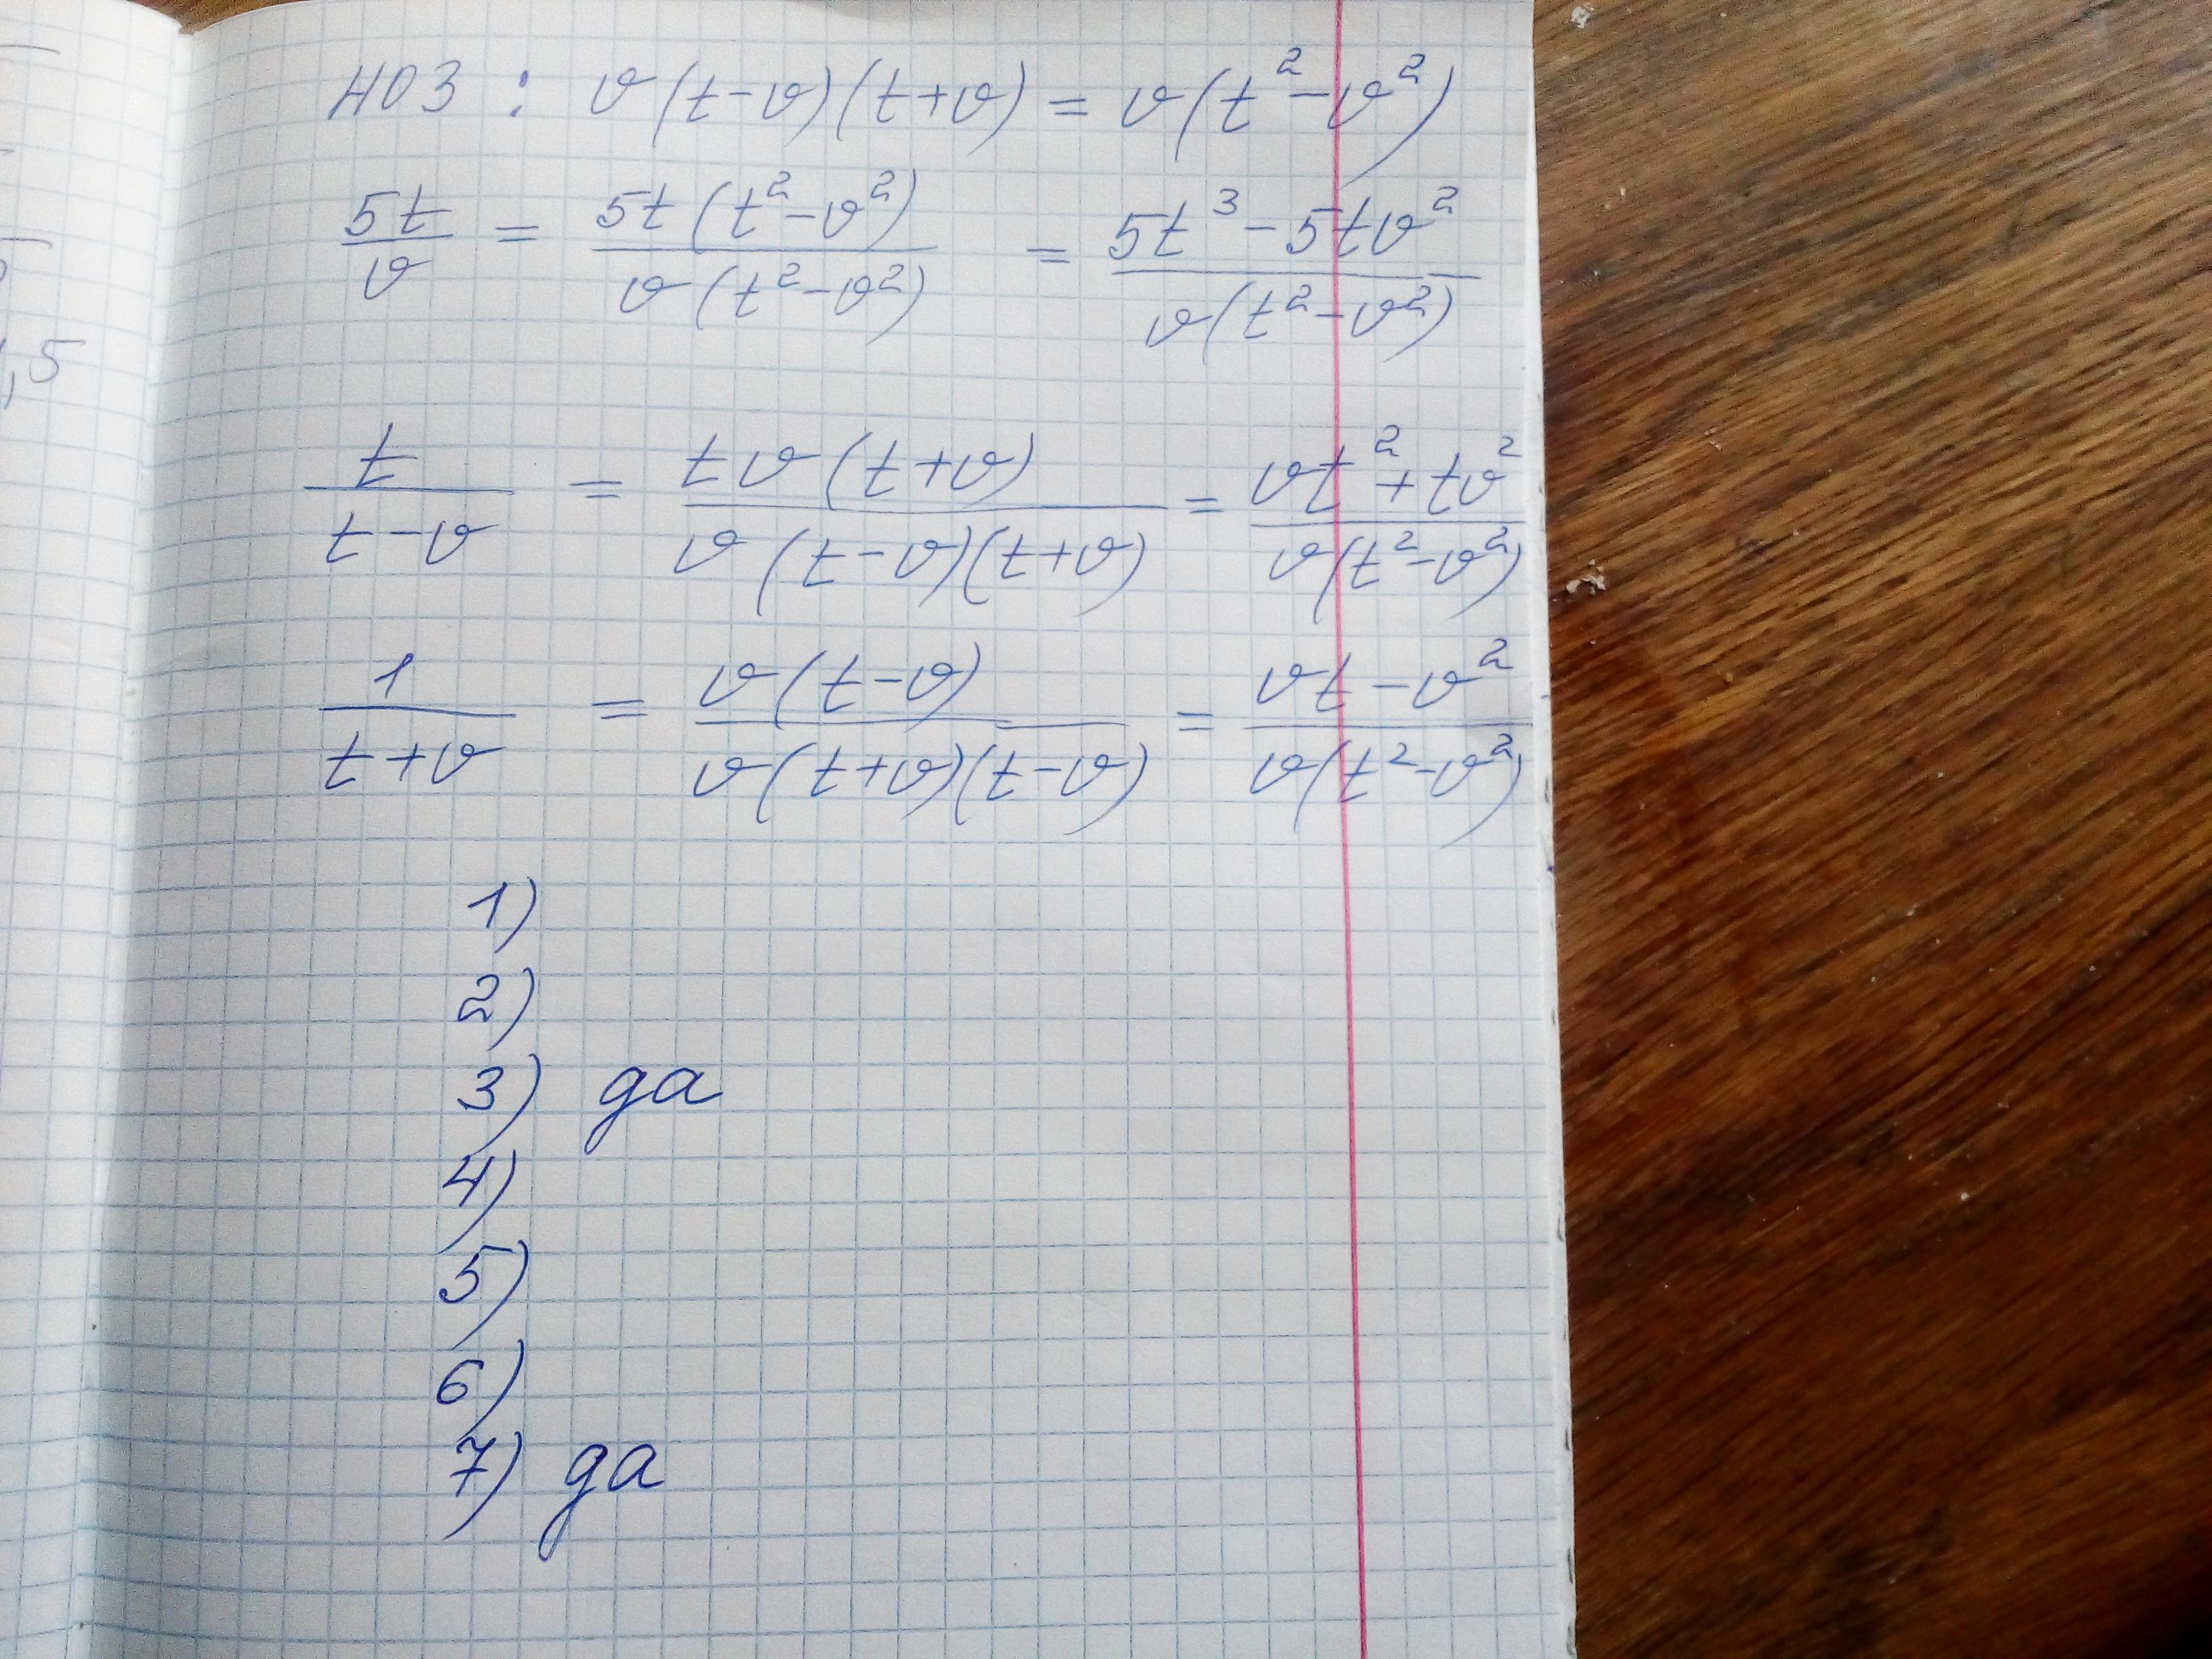 ,5
НОЗ : v(t-v)(t+v) = v(t²-v²)
5t/v = 5t(t²-v²)/v(t²-v²) = 5t³-5tv²/v(t²-v²)
t/t-v = tv(t+v)/v(t-v)(t+v) = vt²+tv²/v(t²-v²)
1/t+v = v(t-v)/v(t+v)(t-v) = vt-v²/v(t²-v²)
1)
2)
3) да
4)
5)
6)
7) да